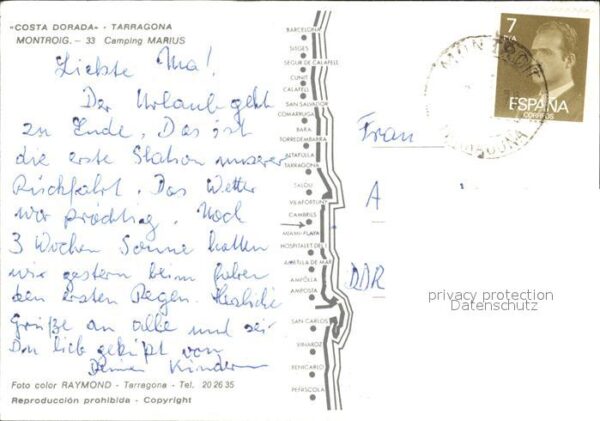 «COSTA DORADA» - TARRAGONA
MONTROIG. - 33 Camping MARIUS
Liebste Ma!
Der Urlaub geht
zu Ende. Das ist
die erste Station unserer
Rückfahrt. Das Wetter
war prächtig. Nach
3 Wochen Sonne hatten
wir gestern beim fahren
den ersten Regen. Herzliche
Grüße an alle und sei
Du lieb geküßt von
Deinen Kindern
Foto color RAYMOND - Tarragona - Tel. 20 26 35
Reproducción prohibida - Copyright
BARCELONA
SITGES
SEGUR DE CALAFELL
CUNIT
CALAFELL
SAN SALVADOR
COMARRUGA
BARA
TORREDEMBARRA
ALTAFULLA
TARRAGONA
SALOU
VILAFORTUNY
CAMBRILS
MIAMI-PLAYA
HOSPITALET DEL I.
AMETLLA DE MAR
AMPOLLA
AMPOSTA
SAN CARLOS
VINAROZ
BENICARLO
PEÑISCOLA
7
PTA
ESPAÑA
CORREOS
MONTROIG
TARRAGONA
Frau
A
DDR
privacy protection
Datenschutz